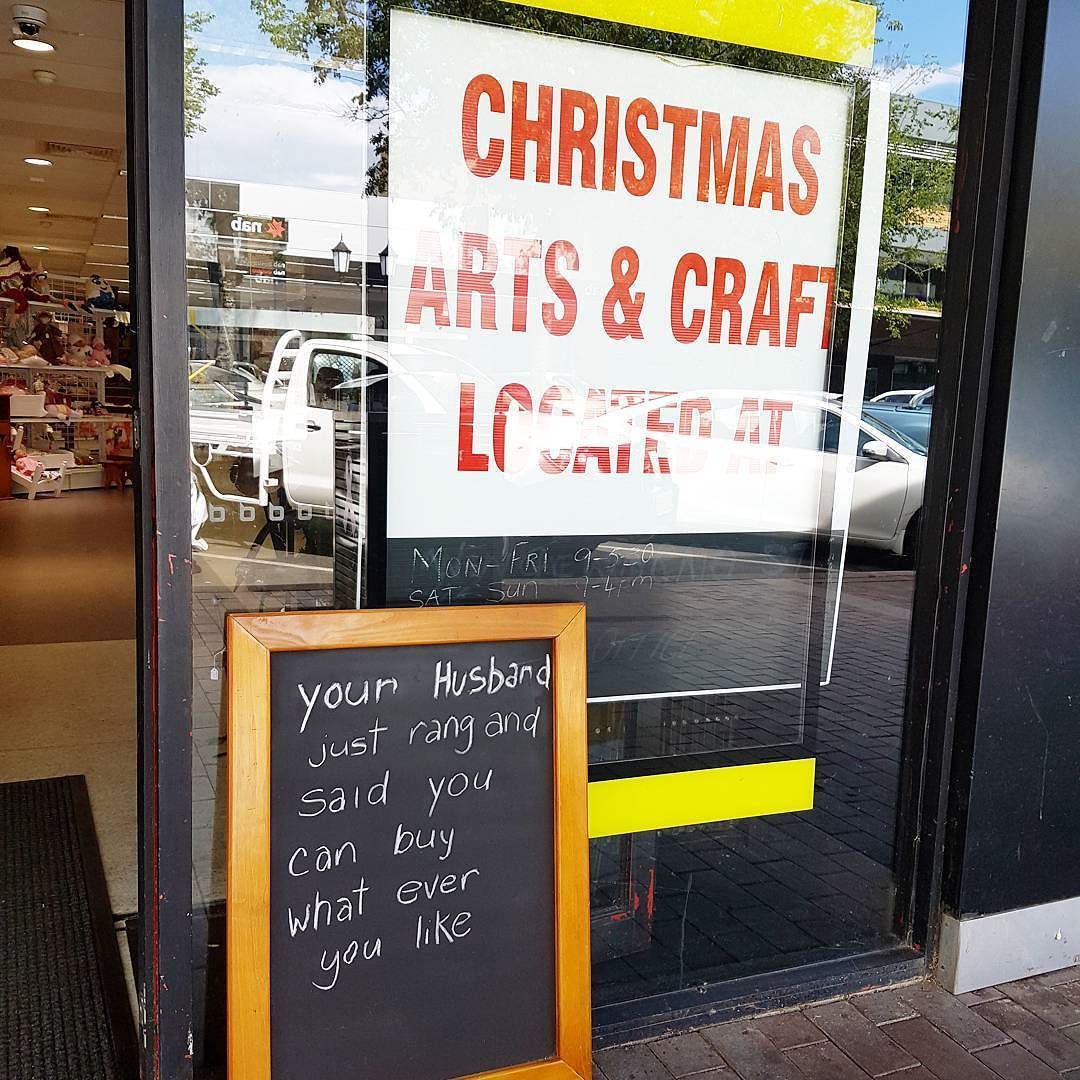 CHRISTMAS
ARTS & CRAFT
LOCATED AT
MON-FRI 9-5-30
SAT Sun 9-4pm
nab
nab
your Husband
just rang and
said you
can buy
what ever
you like